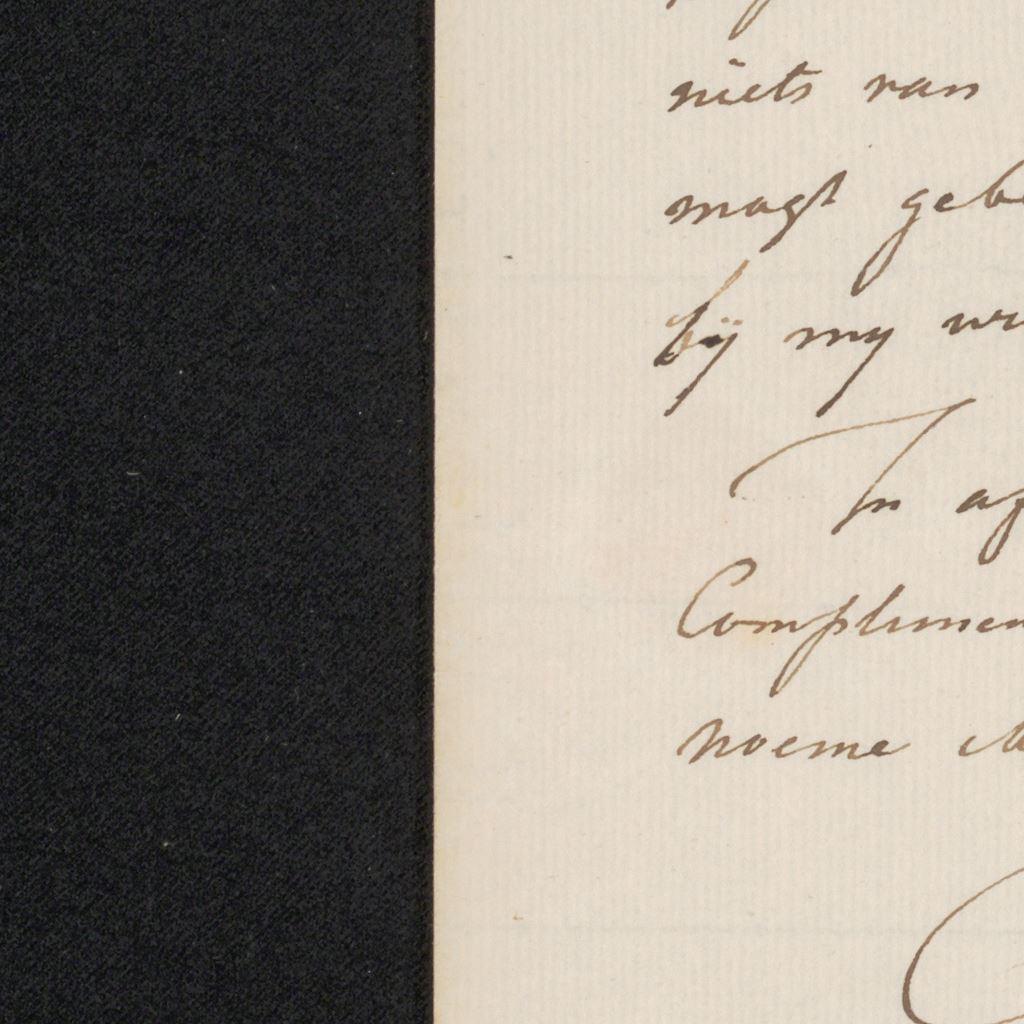 niets van
magt geb
bÿ my vr
In af
Complimen
noeme